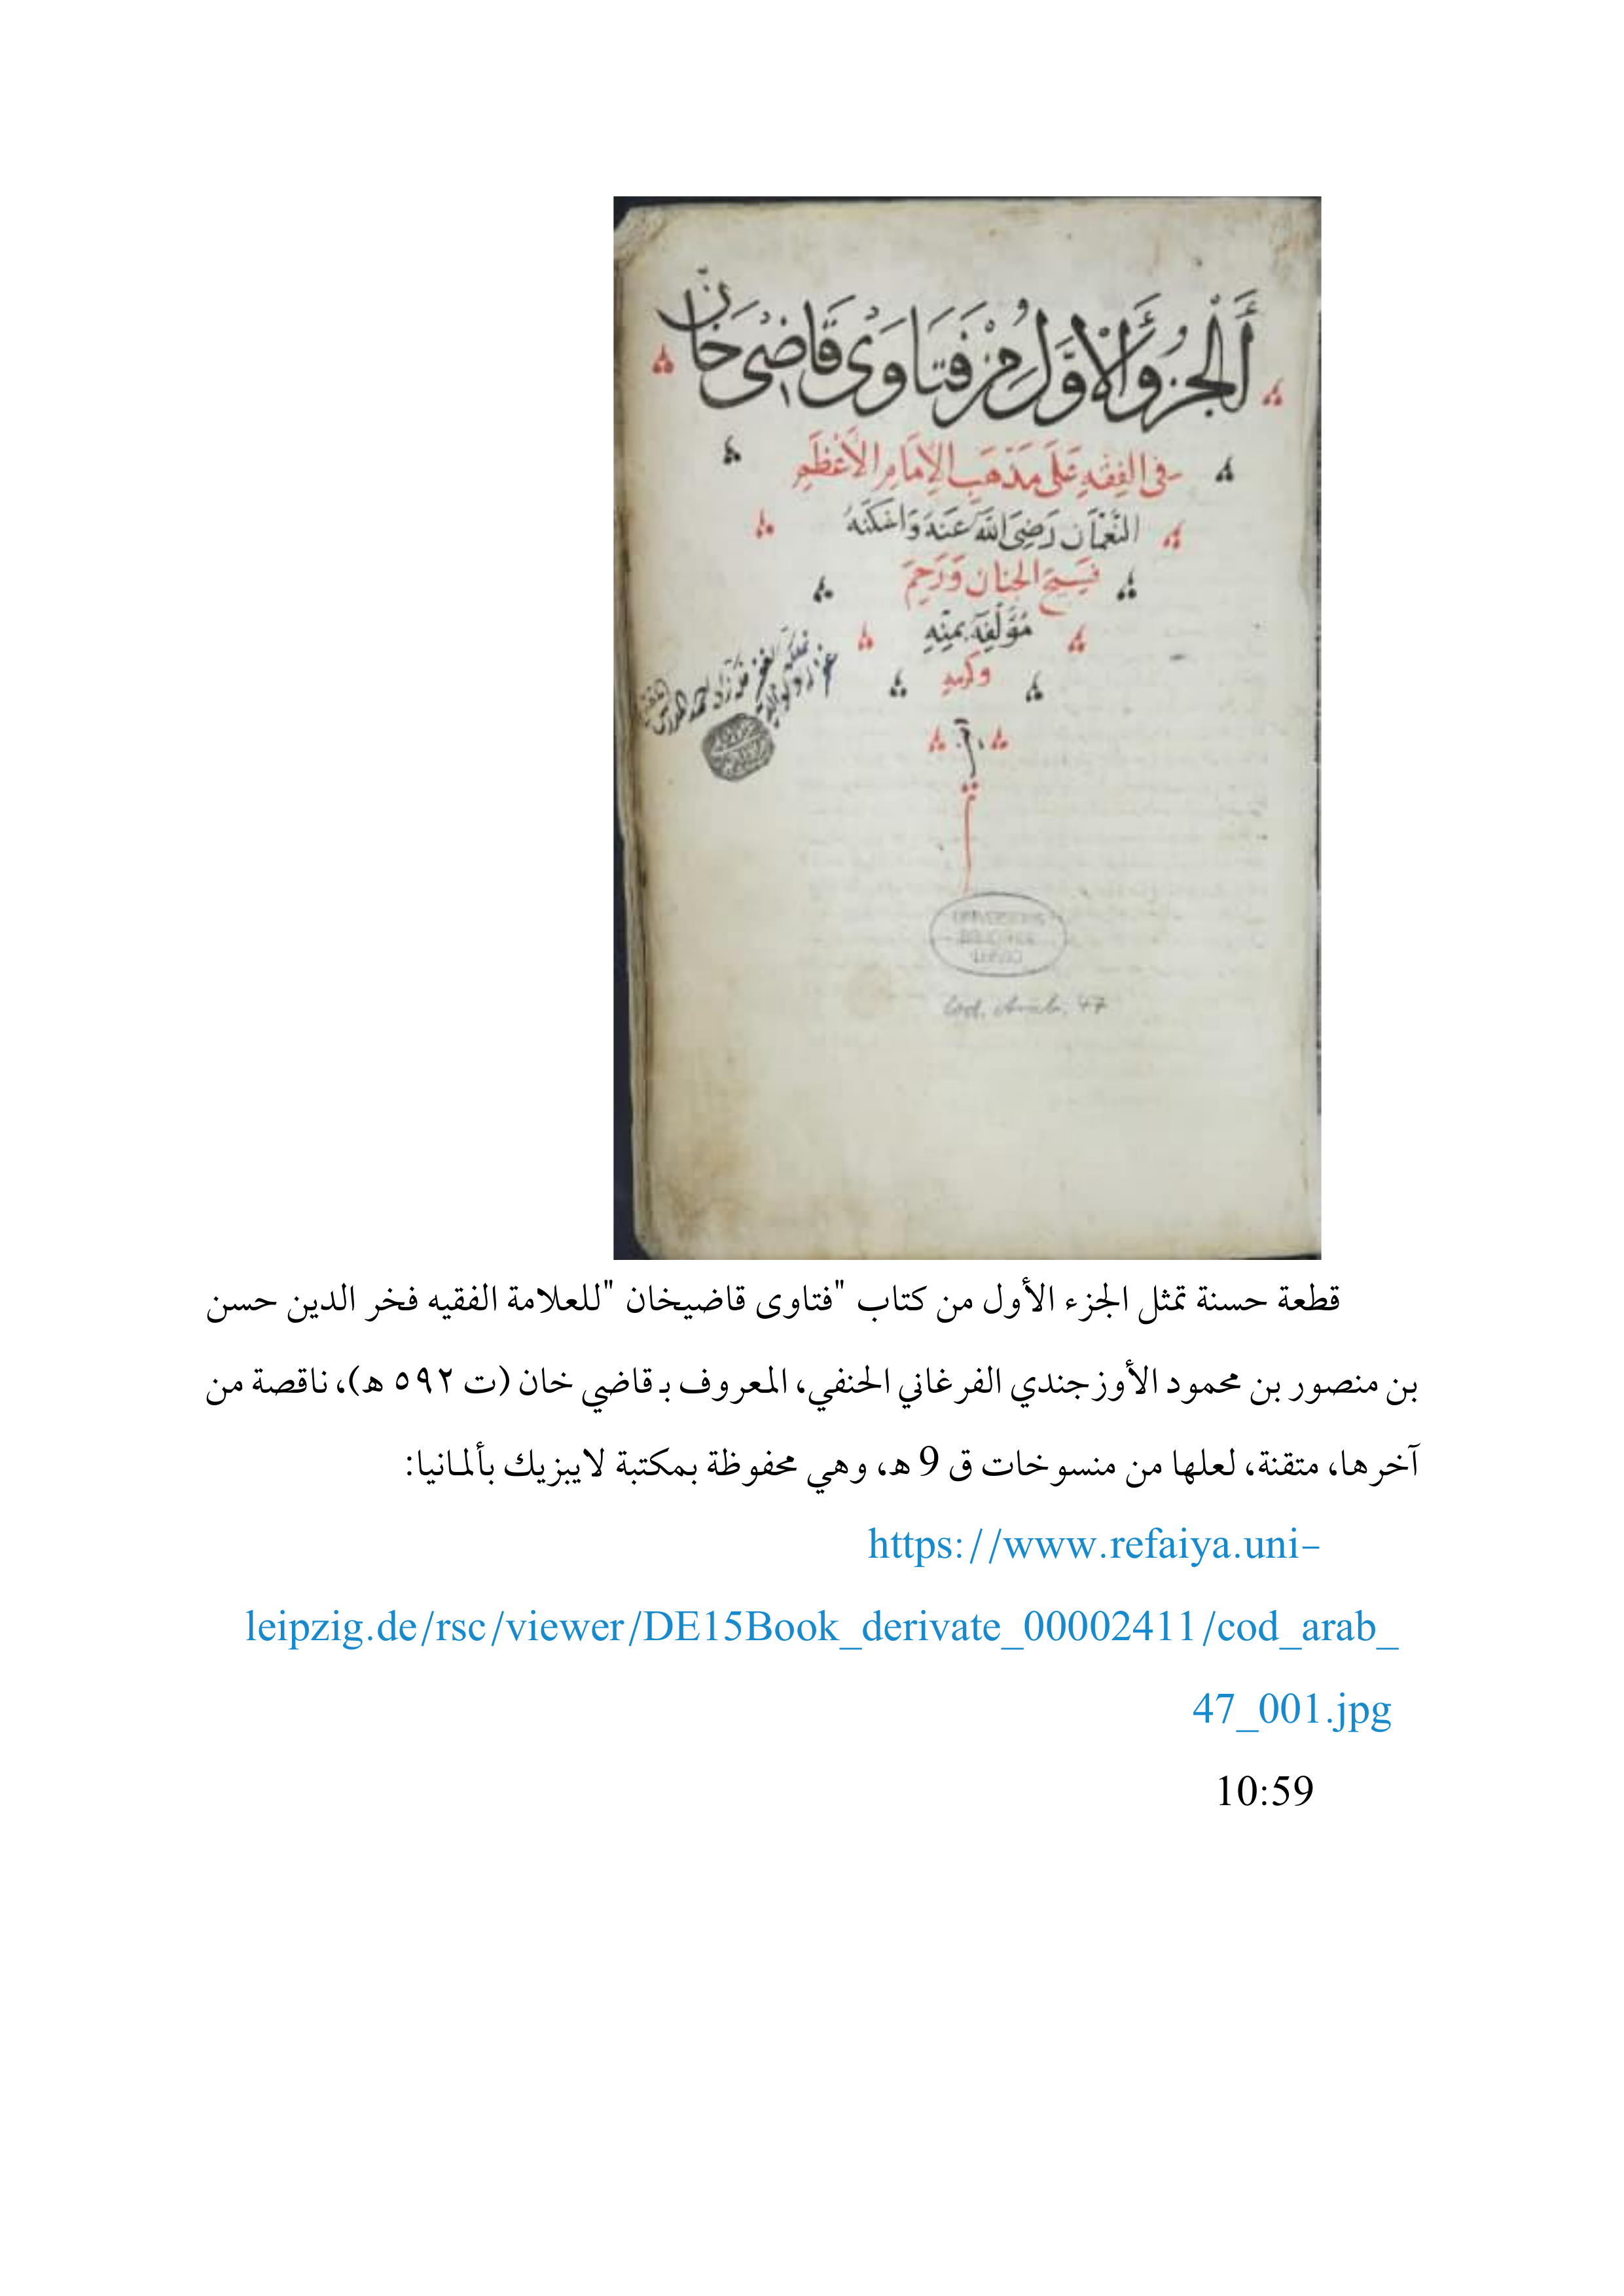 أَلْجُزْؤُ أَلْأَوَّلُ مِنْ فَتَاوَىْ قَاضِيْ خَانْ
فى الفِقْهِ عَلَى مَذْهَبِ الإِمَامِ الأَعْظَمِ
النُّعْمَان رَضِىَ اللَّهُ عَنهُ وَاسْكَنَهُ
فَسِيحَ الجنان وَرَحِمَ
مُؤَلِّفِهُ بمَنِّهِ
وكرمهِ
Cod. Arab. 47
قطعة حسنة تمثل الجزء الأول من كتاب "فتاوى قاضيخان "للعلامة الفقيه فخر الدين حسن
بن منصور بن محمود الأوزجندي الفرغاني الحنفي، المعروف بـ قاضي خان (ت ٥٩٢ هـ)، ناقصة من
آخرها، متقنة، لعلها من منسوخات ق 9 هـ، وهي محفوظة بمكتبة لايبزيك بألمانيا:
https://www.refaiya.uni-
leipzig.de/rsc/viewer/DE15Book_derivate_00002411/cod_arab_
47_001.jpg
10:59